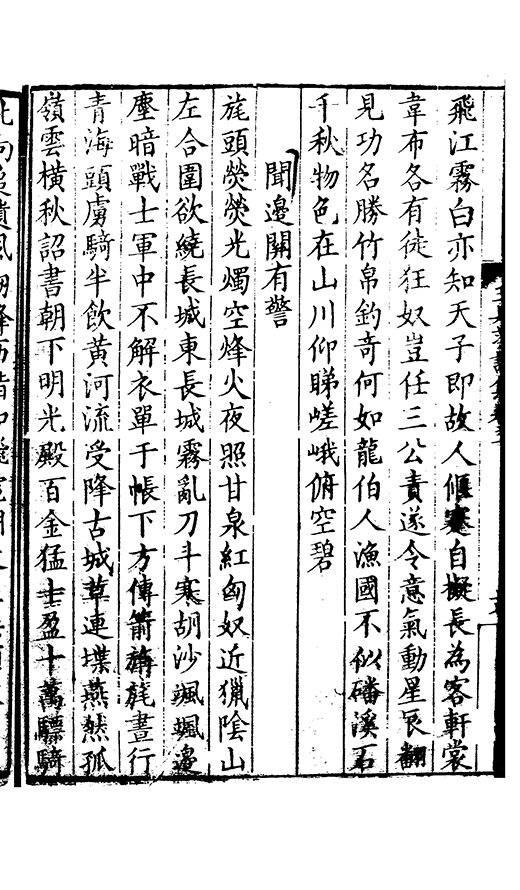 飛江霧白亦知天子即故人偃蹇自擬長為客軒裳
韋布各有徒狂奴豈任三公責遂令意氣動星辰翻
見功名勝竹帛釣竒何如龍伯人漁國不似磻溪石
千秋物色在山川仰睇嵯峨俯空碧
聞邊關有警
旄頭熒熒光燭空烽火夜照甘泉紅匈奴近獵隂山
左合圍欲繞長城東長城霧亂刀斗寒胡沙颯颯邊
塵暗戰士軍中不解衣單于帳下方傳箭旃旄晝行
青海頭虜騎半飲黄河流受降古城草連堞燕然孤
嶺雲橫秋詔書朝下明光殿百金猛士盈十萬驃騎